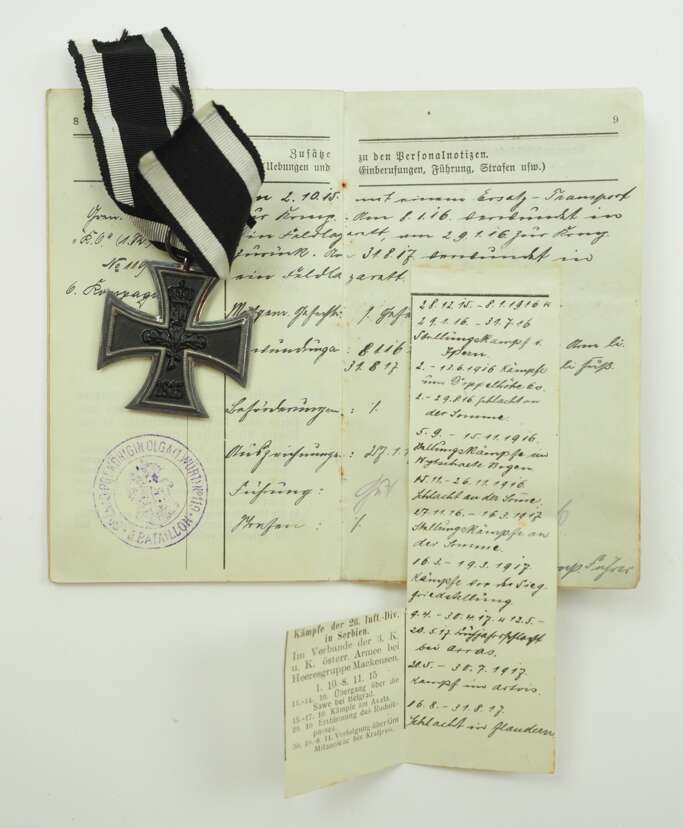 8
9
Zusätze zu den Personalnotizen.
Uebungen und Einberufungen, Führung, Strafen usw.)
2. 10. 15. mit einem Ersatz-Transport
Gren. zur Komp. Am 8.1.16. verwundet in
"K.O" in Feldlazarett, am 29.1.16 zur Komp.
No 119 zurück. Am 31.8.17 verwundet in
6. Kompagn ein Feldlazarett.
Mitgem. Gefechte: 1. Gefe
8.1.16 Am li.
31.8.17 li. Fuß.
Beförderungen: 1.
Auszeichnungen: 27.1.1
Führung:
Strafen: 1.
KÖNIGIN OLGA (1. WÜRTT.) No 119
BATAILLON
28.12.15. - 8.1.1916 u
29.1.16. - 31.7.16
Stellungskampf v.
Ypern.
2. - 13.6.1916 Kämpfe
um Doppelhöhe 60.
2. - 29.8.16 Schlacht an
der Somme.
5.9. - 15.11.1916.
Stellungskämpfe im
Wytschaete Bogen
15.11. - 26.11.1916
Schlacht an der Somme.
27.11.16. - 16.3.1917
Stellungskämpfe an
der Somme.
16.3. - 19.3.1917
Kämpfe vor der Sieg-
friedstellung.
9.4. - 30.4.17. u 12.5. -
20.5.17 Frühjahrsschlacht
bei Arras.
20.5. - 30.7.1917
Kampf im Artois.
16.8. - 31.8.17
Schlacht in Flandern
Führer
Kämpfe der 26. Inft.-Div.
in Serbien.
Im Verbande der 3. K.
u. K. österr. Armee bei
Heeresgruppe Mackensen.
1. 10.-8. 11. 15
11.-14. 10. Übergang über die
Sawe bei Belgrad.
15.-17. 10. Kämpfe am Avala.
20. 10 Erstürmung des Rudnik-
passes.
8. 11. Verfolgung über Grn
Milanovac bis Kraljevo.
W
1914